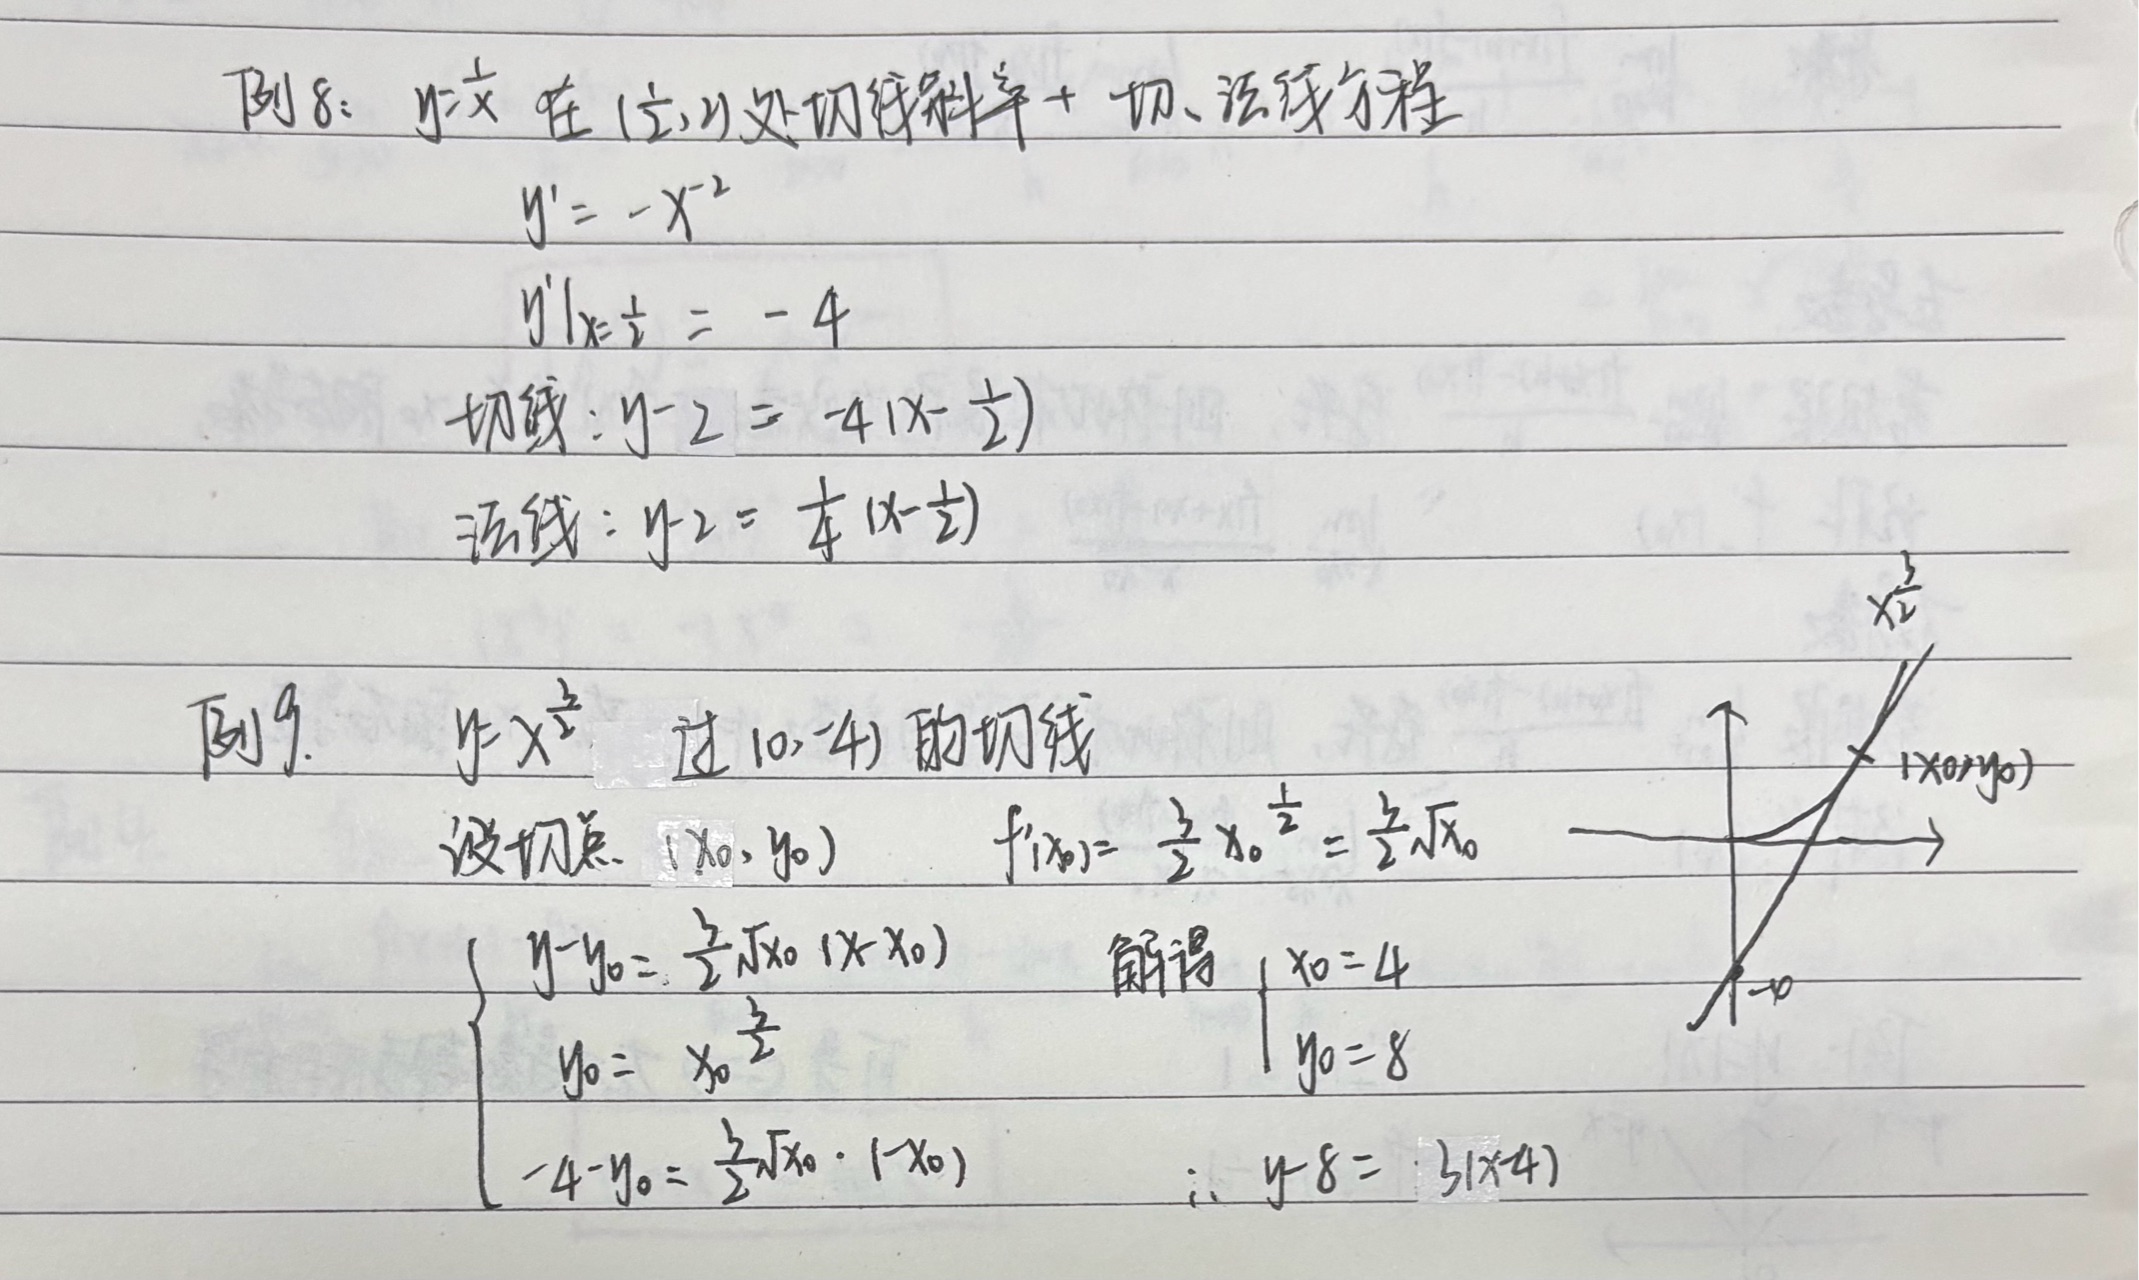 例8: y=1/x 在(1/2,2)处切线斜率+切、法线方程
y'=-x^-2
y'|x=1/2 = -4
切线:y-2=-4(x-1/2)
法线:y-2=1/4(x-1/2)
例9. y=x^3/2 过(0,-4)的切线
设切点(x0,y0) f'(x0)=3/2 x0^1/2=3/2√x0
y-y0=3/2√x0(x-x0)
y0=x0^3/2
-4-y0=3/2√x0·(-x0)
解得 x0=4
y0=8
∴ y-8=3(x-4)
x^3/2
(x0,y0)